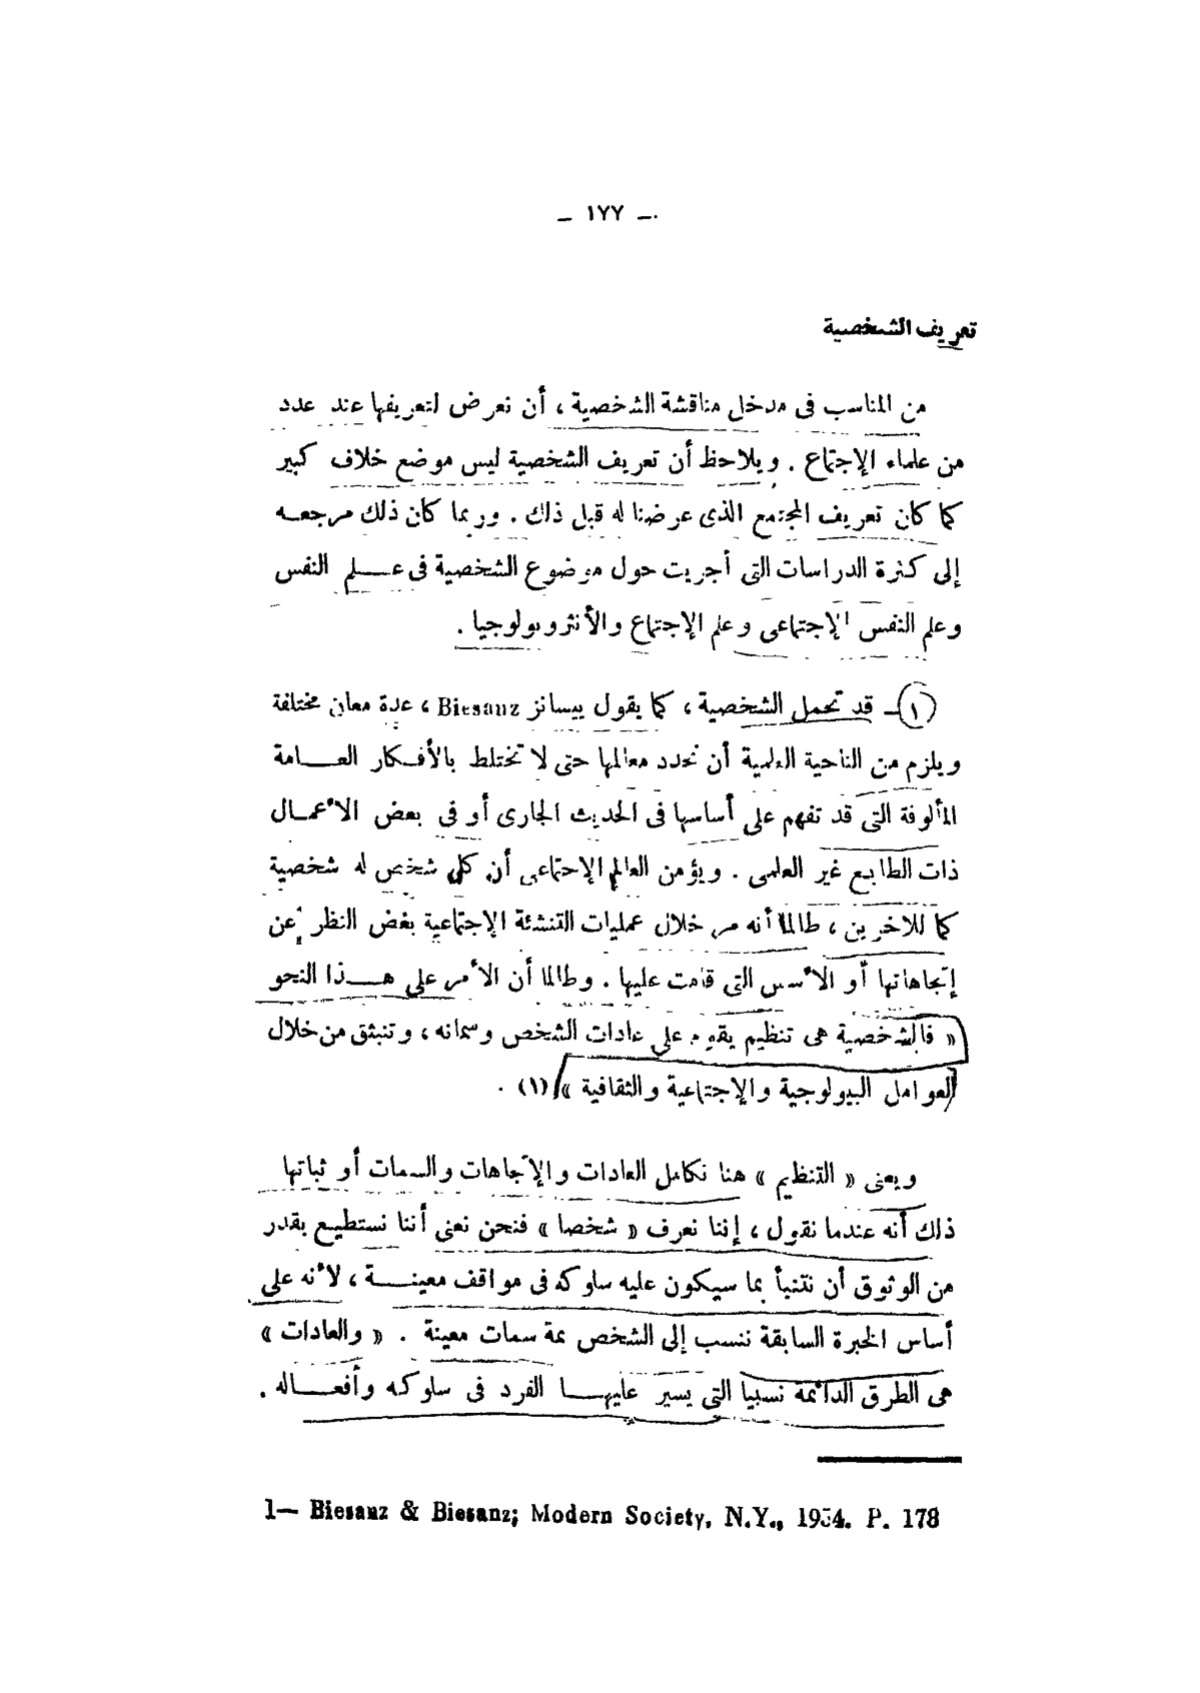 ـ ١٧٧ ـ
تعريف الشخصية
من المناسب فى مدخل مناقشة الشخصية ، أن نعرض لتعريفها عند عدد
من علماء الإجتماع . ويلاحظ أن تعريف الشخصية ليس موضع خلاف كبير
كما كان تعريف المجتمع الذى عرضنا له قبل ذلك . وربما كان ذلك مرجعـه
إلى كثرة الدراسات التى أجريت حول موضوع الشخصية فى عـــلم النفس
وعلم النفس الإجتماعى وعلم الإجتماع والأنثروبولوجيا .
١ـ قد تحمل الشخصية ، كما يقول بيسانز Biesanz ، عدة معان مختلفة
ويلزم من الناحية العلمية أن نحدد معالمها حتى لا تختلط بالأفـكار العـــامة
المألوفة التى قد تفهم على أساسها فى الحديث الجارى أو فى بعض الأعمـال
ذات الطابع غير العلمى . ويؤمن العالم الإجتماعى أن كل شخص له شخصية
كما للاخرين ، طالما أنه مر خلال عمليات التنشئة الإجتماعية بغض النظر عن
إتجاهاتها أو الأسس التى قامت عليها . وطالما أن الأمر على هـــذا النحو
« فالشخصية هى تنظيم يقوم على عادات الشخص وسماته ، وتنبثق من خلال
العوامل البيولوجية والإجتماعية والثقافية » (١) .
ويعنى « التنظيم » هنا تكامل العادات والإتجاهات والسمات أو ثباتها
ذلك أنه عندما نقول ، إننا نعرف « شخصا » فنحن نعنى أننا نستطيـع بقدر
من الوثوق أن نتنبأ بما سيكون عليه سلوكه فى مواقف معينـــة ، لأنه على
أساس الخبرة السابقة ننسب إلى الشخص ثمة سمات معينة . « والعادات »
هى الطرق الدائمة نسبيا التى يسير عليهـــا الفرد فى سلوكـه وأفعـــاله .
1— Biesanz & Biesanz; Modern Society, N.Y., 1954. P. 178